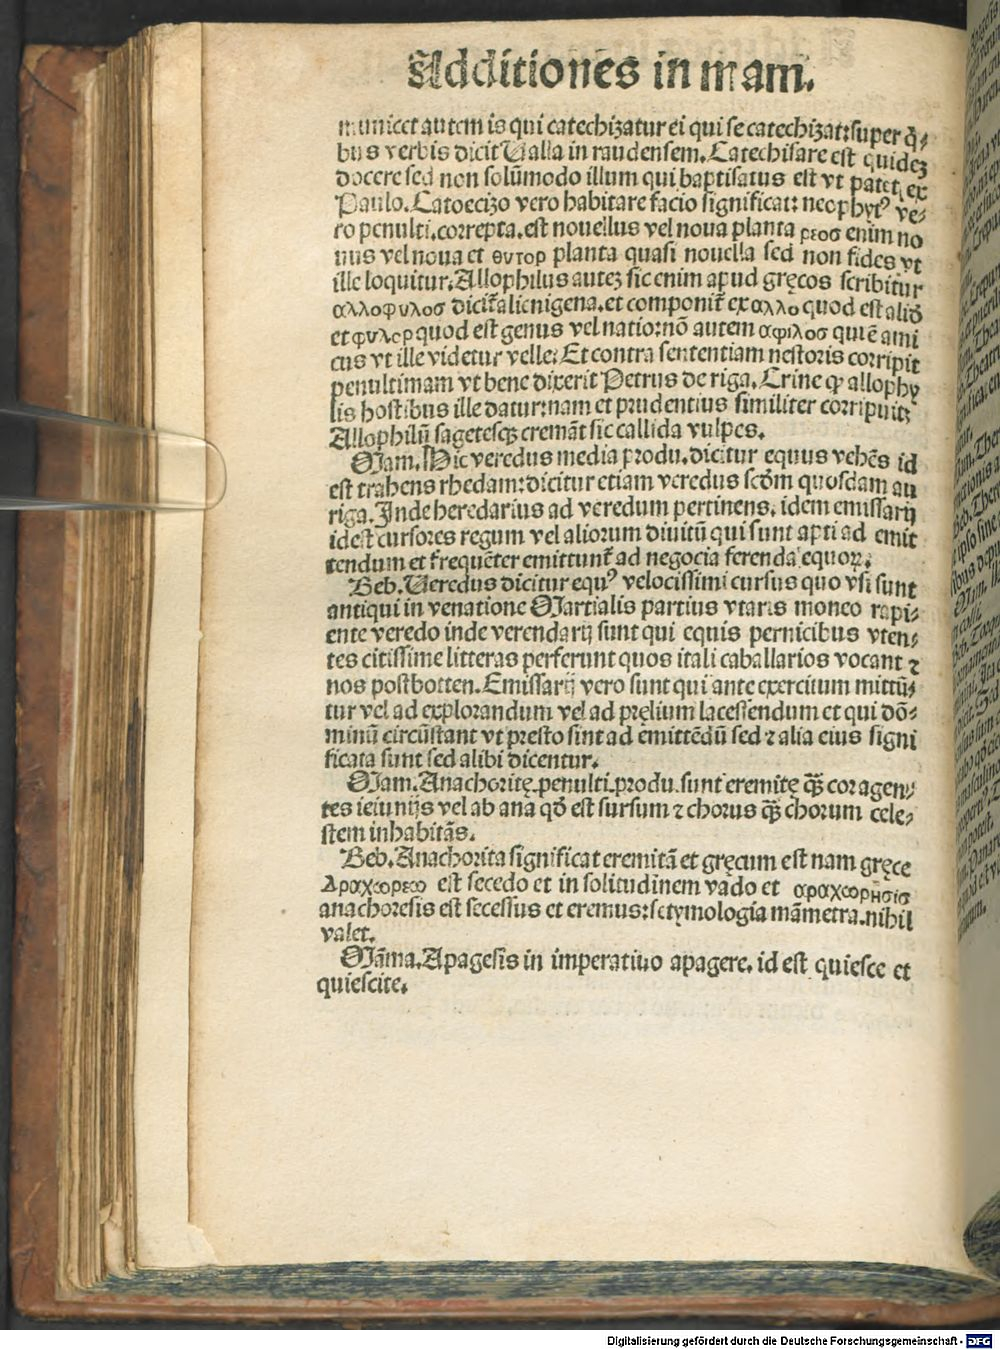 Additiones in mam.
municet autem is qui catechizatur ei qui se catechizat: super q̃-
bus verbis dicit Ualla in raudensem. Catechisare est quidez
docere sed non solũmodo illum qui baptisatus est vt patet ex
Paulo. Catoecizo vero habitare facio significat: neophytꝰ ve-
ro penulti. correpta. est nouellus vel noua planta ρεοσ enim no
uus vel noua et θυτορ planta quasi nouella sed non fides vt
ille loquitur. Allophilus autez sic enim apud gręcos scribitur
αλλοφυλοσ dicit̃ alienigena. et componit̃ ex αλλο quod est aliõ
et φυλορ quod est genus vel natio: nõ autem αφιλοσ qui ẽ ami
cus vt ille videtur velle. Et contra sententiam nestoris corripit
penultimam vt bene dixerit Petrus de riga. Crine ꝙ allophy
lis hostibus ille datur: nam et prudentius similiter corripuit;
Allophilũ sagetesqꝫ cremãt sic callida vulpes.
Mam. Hic veredus media produ. dicitur equus vehẽs id
est trahens rhedam: dicitur etiam veredus scðm quosdam au
riga. Inde heredarius ad veredum pertinens. idem emissarij
idest cursores regum vel aliorum diuitũ qui sunt apti ad emit
tendum et frequẽter emittunt̃ ad negocia ferenda equoꝝ.
Beb. Ueredus dicitur equꝰ velocissimi cursus quo vsi sunt
antiqui in venatione Martialis partius vtaris moneo rapi-
ente veredo inde verendarij sunt qui equis pernicibus vten-
tes citissime litteras perferunt quos itali caballarios vocant ⁊
nos postbotten. Emissarij vero sunt qui ante exercitum mittũ-
tur vel ad explorandum vel ad pręlium lacessendum et qui dõ-
minũ circũstant vt presto sint ad emittẽdũ sed ⁊ alia eius signi
ficata sunt sed alibi dicentur.
Mam. Anachoritę. penulti. produ. sunt eremitę qꝫ cor agen-
tes ieiunijs vel ab ana qð est sursum ⁊ chorus qꝫ chorum cele-
stem inhabitãs.
Beb. Anachorita significat eremitã et gręcum est nam gręce
Αραχωρεω est secedo et in solitudinem vado et αραχωρησισ
anachoresis est secessus et eremus: s etymologia mãmetra. nihil
valet.
Mãma. Apagesis in imperatiuo apagere. id est quiesce et
quiescite.
Digitalisierung gefördert durch die Deutsche Forschungsgemeinschaft - DFG